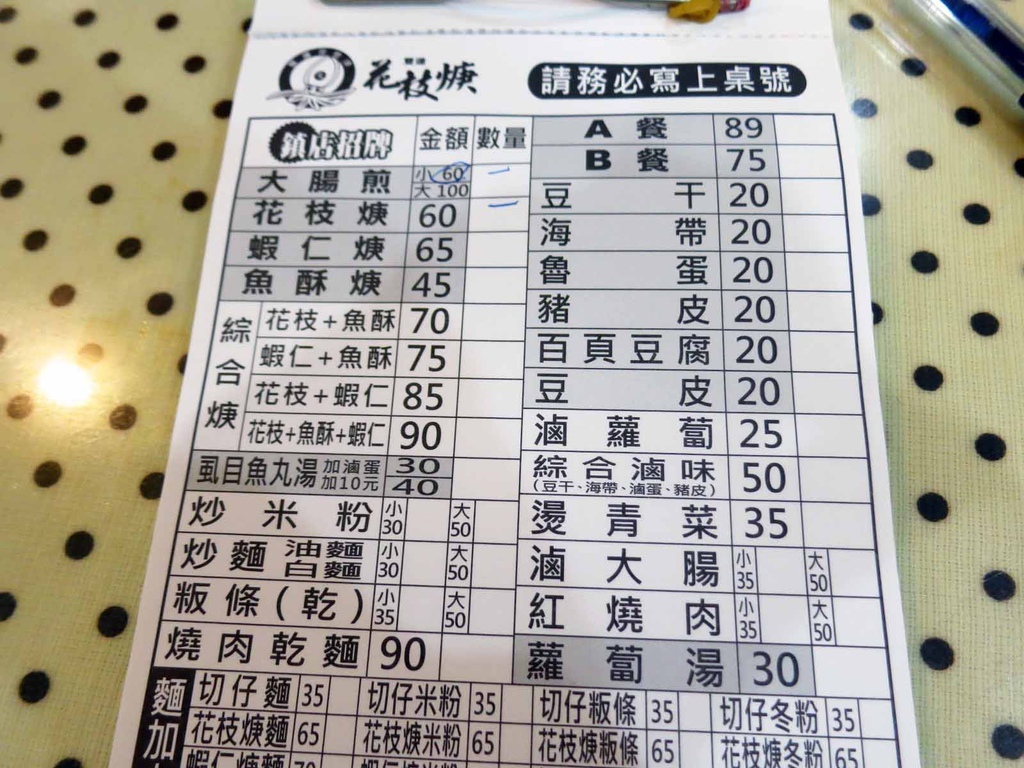 雙連
花枝焿
請務必寫上桌號
鎮店招牌 金額 數量
大腸煎 小 60 一
大 100
花枝焿 60 一
蝦仁焿 65
魚酥焿 45
綜合焿
花枝+魚酥 70
蝦仁+魚酥 75
花枝+蝦仁 85
花枝+魚酥+蝦仁 90
虱目魚丸湯 加滷蛋加10元 30 40
炒米粉 小30 大50
炒麵 油麵 白麵 小30 大50
粄條(乾) 小35 大50
燒肉乾麵 90
A餐 89
B餐 75
豆干 20
海帶 20
魯蛋 20
豬皮 20
百頁豆腐 20
豆皮 20
滷蘿蔔 25
綜合滷味 50
(豆干、海帶、滷蛋、豬皮)
燙青菜 35
滷大腸 小35 大50
紅燒肉 小35 大50
蘿蔔湯 30
麵加
切仔麵 35 切仔米粉 35 切仔粄條 35 切仔冬粉 35
花枝焿麵 65 花枝焿米粉 65 花枝焿粄條 65 花枝焿冬粉 65
蝦仁焿麵 70 蝦仁焿米粉